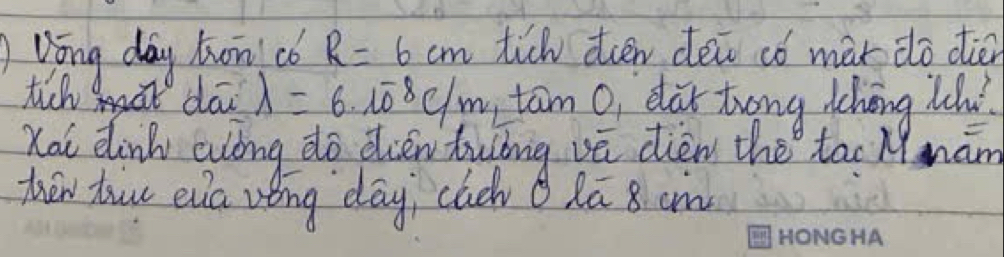 ) Vòng dây tròn có R = 6 cm tích điện đều có mật độ điện
tích dài λ = 6.10⁻⁸ C/m, tâm O, đặt trong không khí.
Xác định cường độ điện trường và điện thế tại M nằm
trên trục của vòng dây, cách O là 8 cm
HONG HA